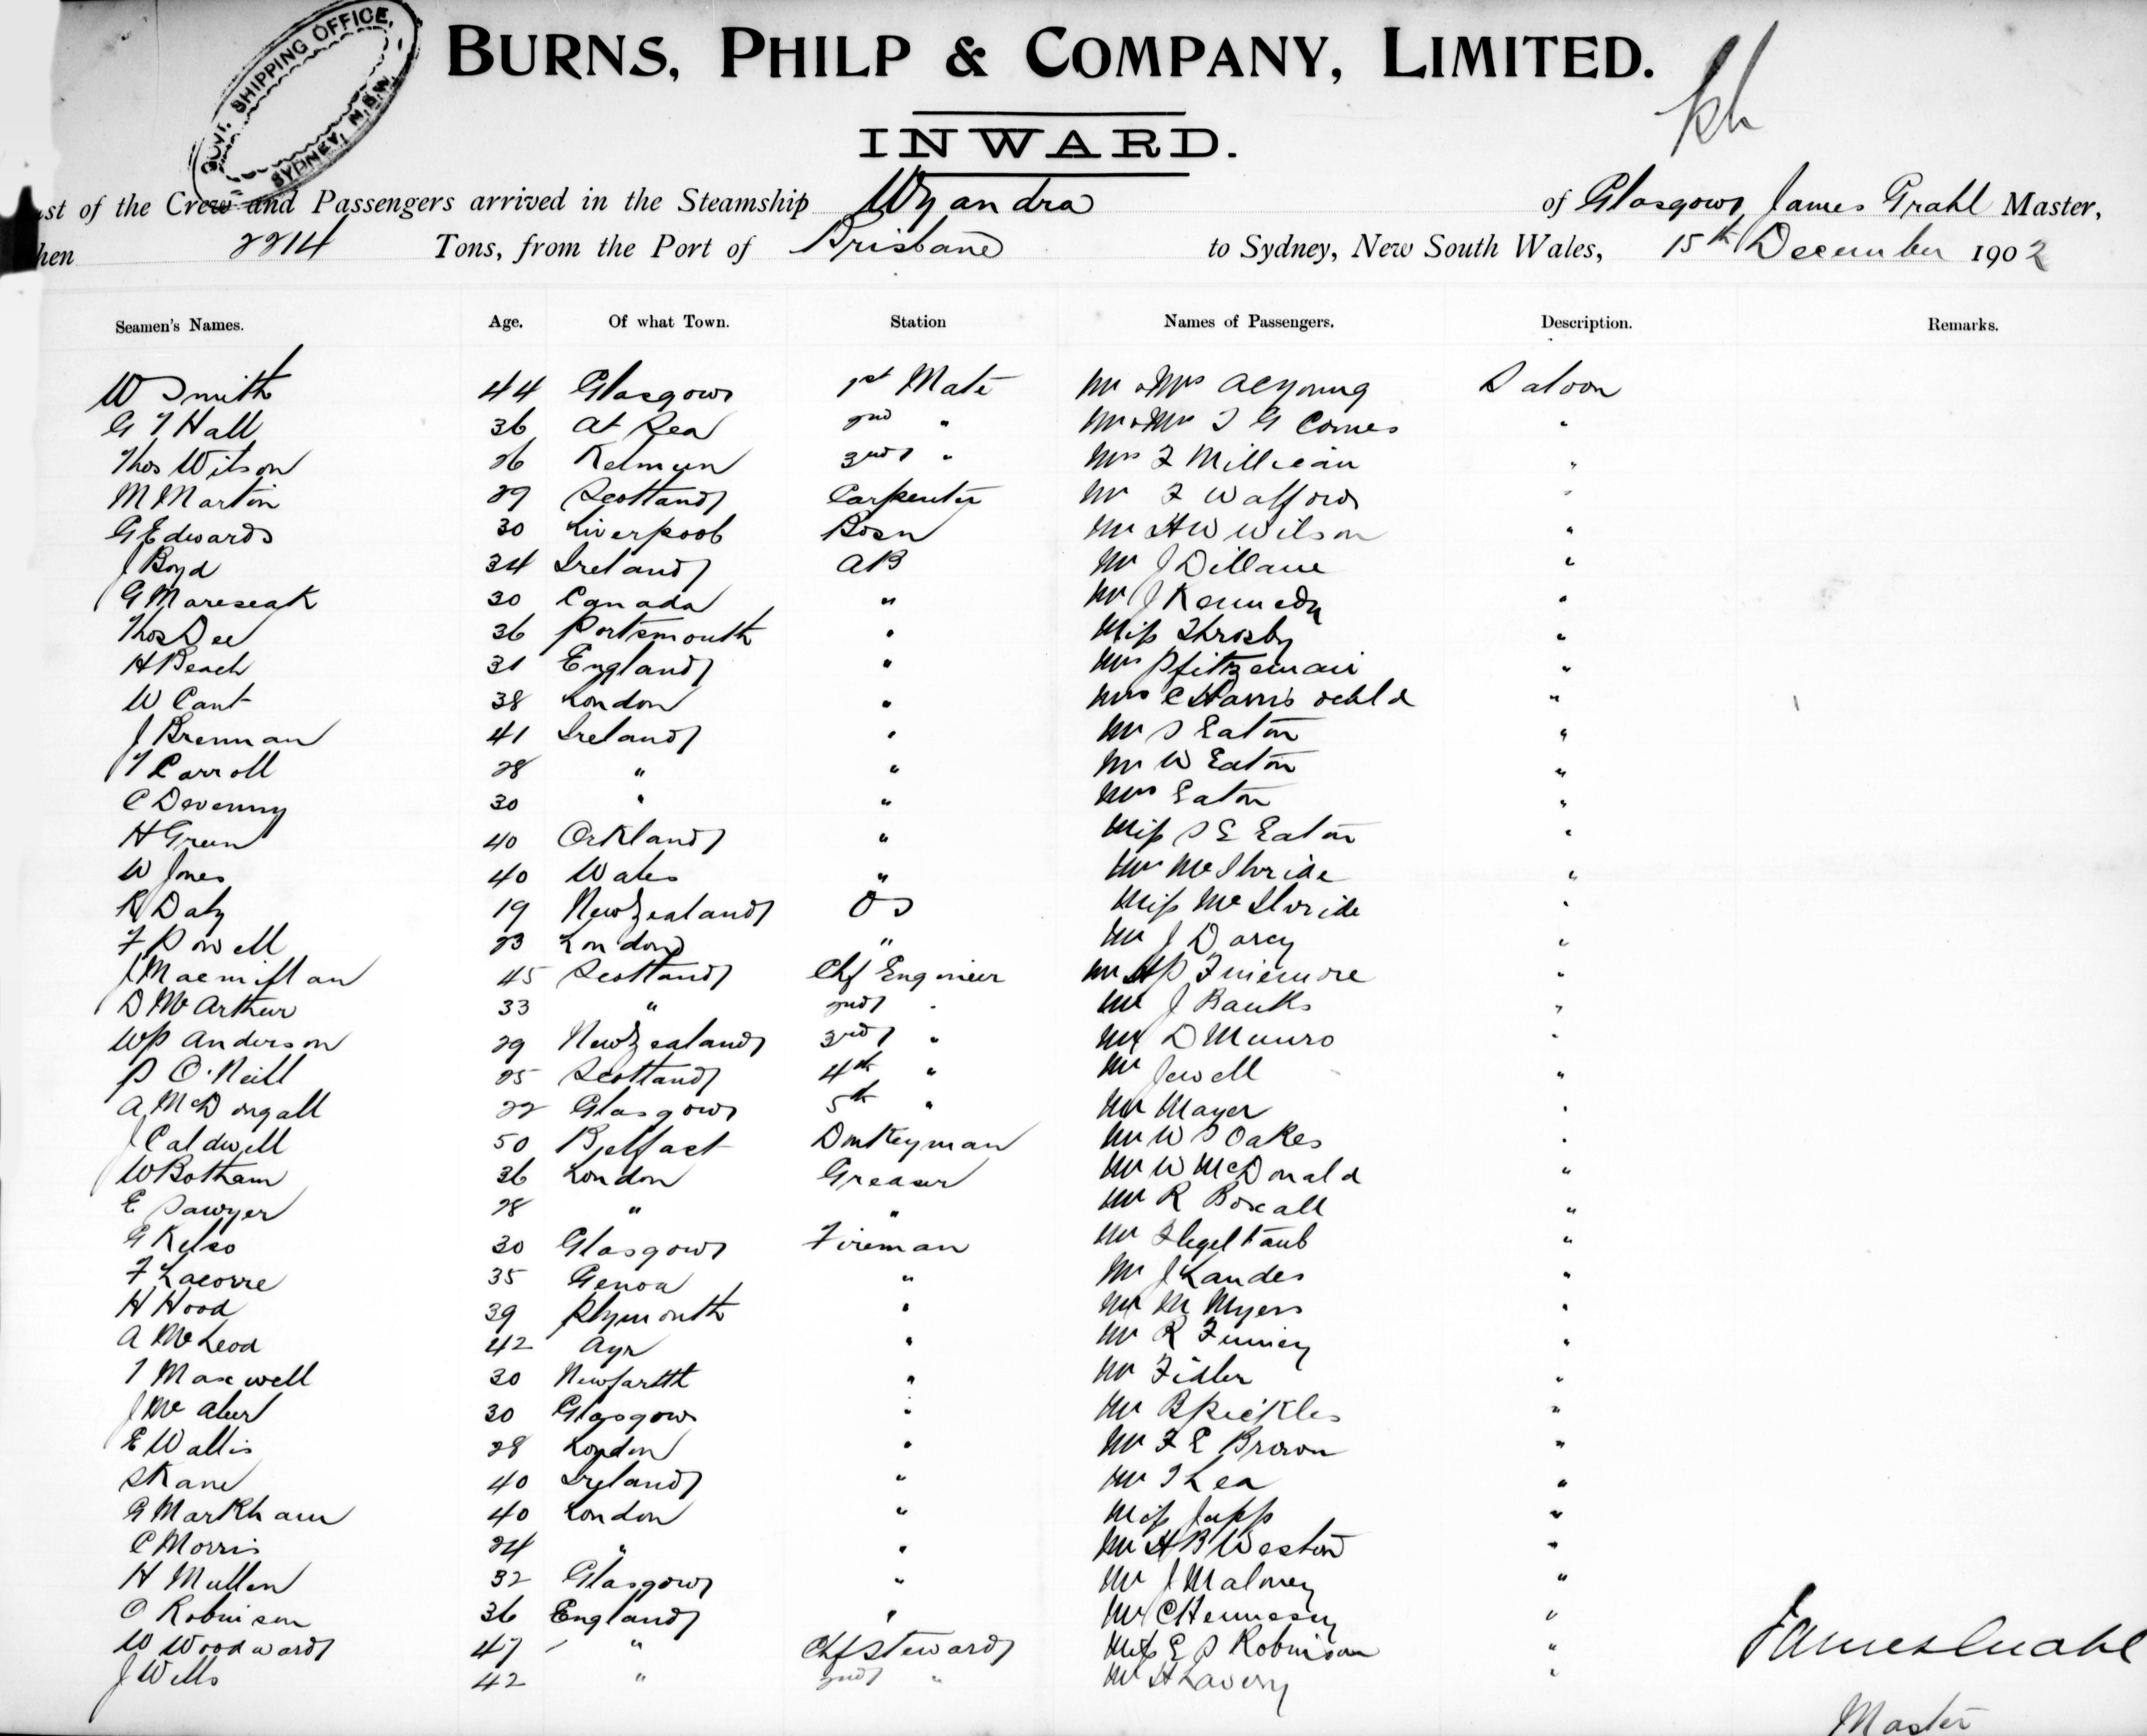 GOVT. SHIPPING OFFICE,
SYDNEY, N.S.W.
BURNS, PHILP & COMPANY, LIMITED.
INWARD.
of the Crew and Passengers arrived in the Steamship Wyandra of Glasgow, James Grahl Master,
2214 Tons, from the Port of Brisbane to Sydney, New South Wales, 15th December 1902
Seamen's Names. Age. Of what Town. Station Names of Passengers. Description. Remarks.
W Smith 44 Glasgow 1st Mate Mr & Mrs Saloon
G T Hall 36 At Sea 2nd " Mr & Mrs T G Comes "
Thos Wilson 26 3rd " Mrs F Millican "
M Martin 29 Scotland Carpenter Mr F Walford "
G Edwards 30 Liverpool Bosn Mr H W Wilson "
J Boyd 34 Ireland AB Mr J Dillane "
G 30 Canada " Mr J Kennedy "
Thos Dee 36 Portsmouth " Miss Throsby "
H Beach 31 England " Mrs "
W Cant 38 London " Mrs C Harris "
J Brennan 41 Ireland " Mr S Eaton "
T Carroll 28 " " Mr W Eaton "
C Devenny 30 " " Mrs Eaton "
H Green 40 Orkland " Miss S E Eaton "
W Jones 40 Wales " "
R Daly 19 New Zealand OS Miss "
F Powell 23 London " Mr J Darcy "
J Macmillan 45 Scotland Chf Engineer Mr Finemore "
D McArthur 33 " 2nd " Mr J Banks "
W P Anderson 29 New Zealand 3rd " Mr D Munro "
P O'Neill 25 Scotland 4th " Mr Jewell "
A McDougall 22 Glasgow 5th " Mr Mayer "
J Caldwell 50 Belfast Donkeyman Mr W S Oakes "
W Botham 36 London Greaser Mr W McDonald "
E Sawyer 28 " " Mr R Boxall "
G Kelso 30 Glasgow Fireman Mr Flegeltaub "
F Lacorre 35 Genoa " Mr J Landes "
H Hood 39 Plymouth " Mr M Myers "
A McLeod 42 Ayr " Mr R "
T Maxwell 30 " Mr Fidler "
J 30 Glasgow " Mr B Pickles "
E Wallis 28 London " Mr F E Brown "
S Kane 40 Ireland " Mr T Lea "
G Markham 40 London " Miss Japp "
C Morris 24 " " Mr H B Weston "
H Mullen 32 Glasgow " Mr J Maloney "
O Robinson 36 England " Mr C Hennessy "
W Woodward 47 " Chf Steward Miss E S Robinson "
J Wells 42 " 2nd " Mr H Lavery "
James Grahl
Master